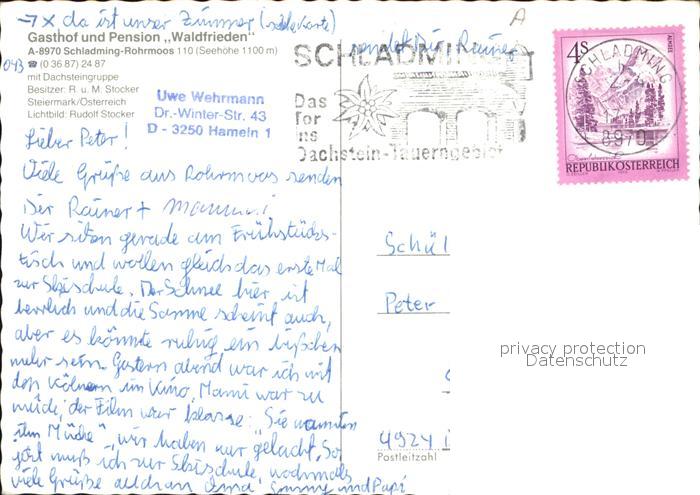 → X da ist unser Zimmer (siehe Karte)
sendet Dir Rainer
Gasthof und Pension „Waldfrieden"
A-8970 Schladming-Rohrmoos 110 (Seehöhe 1100 m)
☎ (0 36 87) 24 87
043
mit Dachsteingruppe
Besitzer: R. u. M. Stocker
Steiermark/Österreich
Lichtbild: Rudolf Stocker
Uwe Wehrmann
Dr.-Winter-Str. 43
D - 3250 Hameln 1
SCHLADMING
Das
Tor
ins
Dachstein-Tauerngebiet
4S
SCHLADMING
8970
REPUBLIK ÖSTERREICH
Lieber Peter!
Viele Grüße aus Rohrmoos senden
Dir Rainer + Mammi!
Wir sitzen gerade am Frühstücks-
tisch und wollen gleich das erste Mal
zur Skischule. Der Schnee hier ist
herrlich und die Sonne scheint auch,
aber es könnte ruhig ein bißchen
mehr sein. Gestern abend war ich mit
den Kölnern im Kino, Mami war zu
müde, der Film war klasse: „Sie nannten
ihn Mücke", wir haben nur gelacht. So,
jetzt muß ich zur Skischule, nochmals
viele Grüße auch an Oma und Papi
Schül
Peter
4924
Postleitzahl
privacy protection
Datenschutz